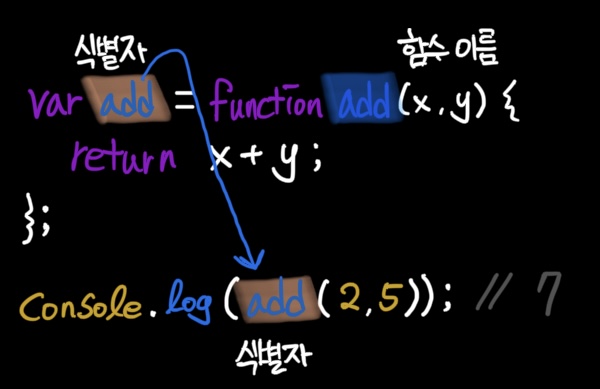 식별자 함수 이름
var add = function add(x,y) {
return x + y ;
};
Console.log(add(2,5)); // 7
식별자